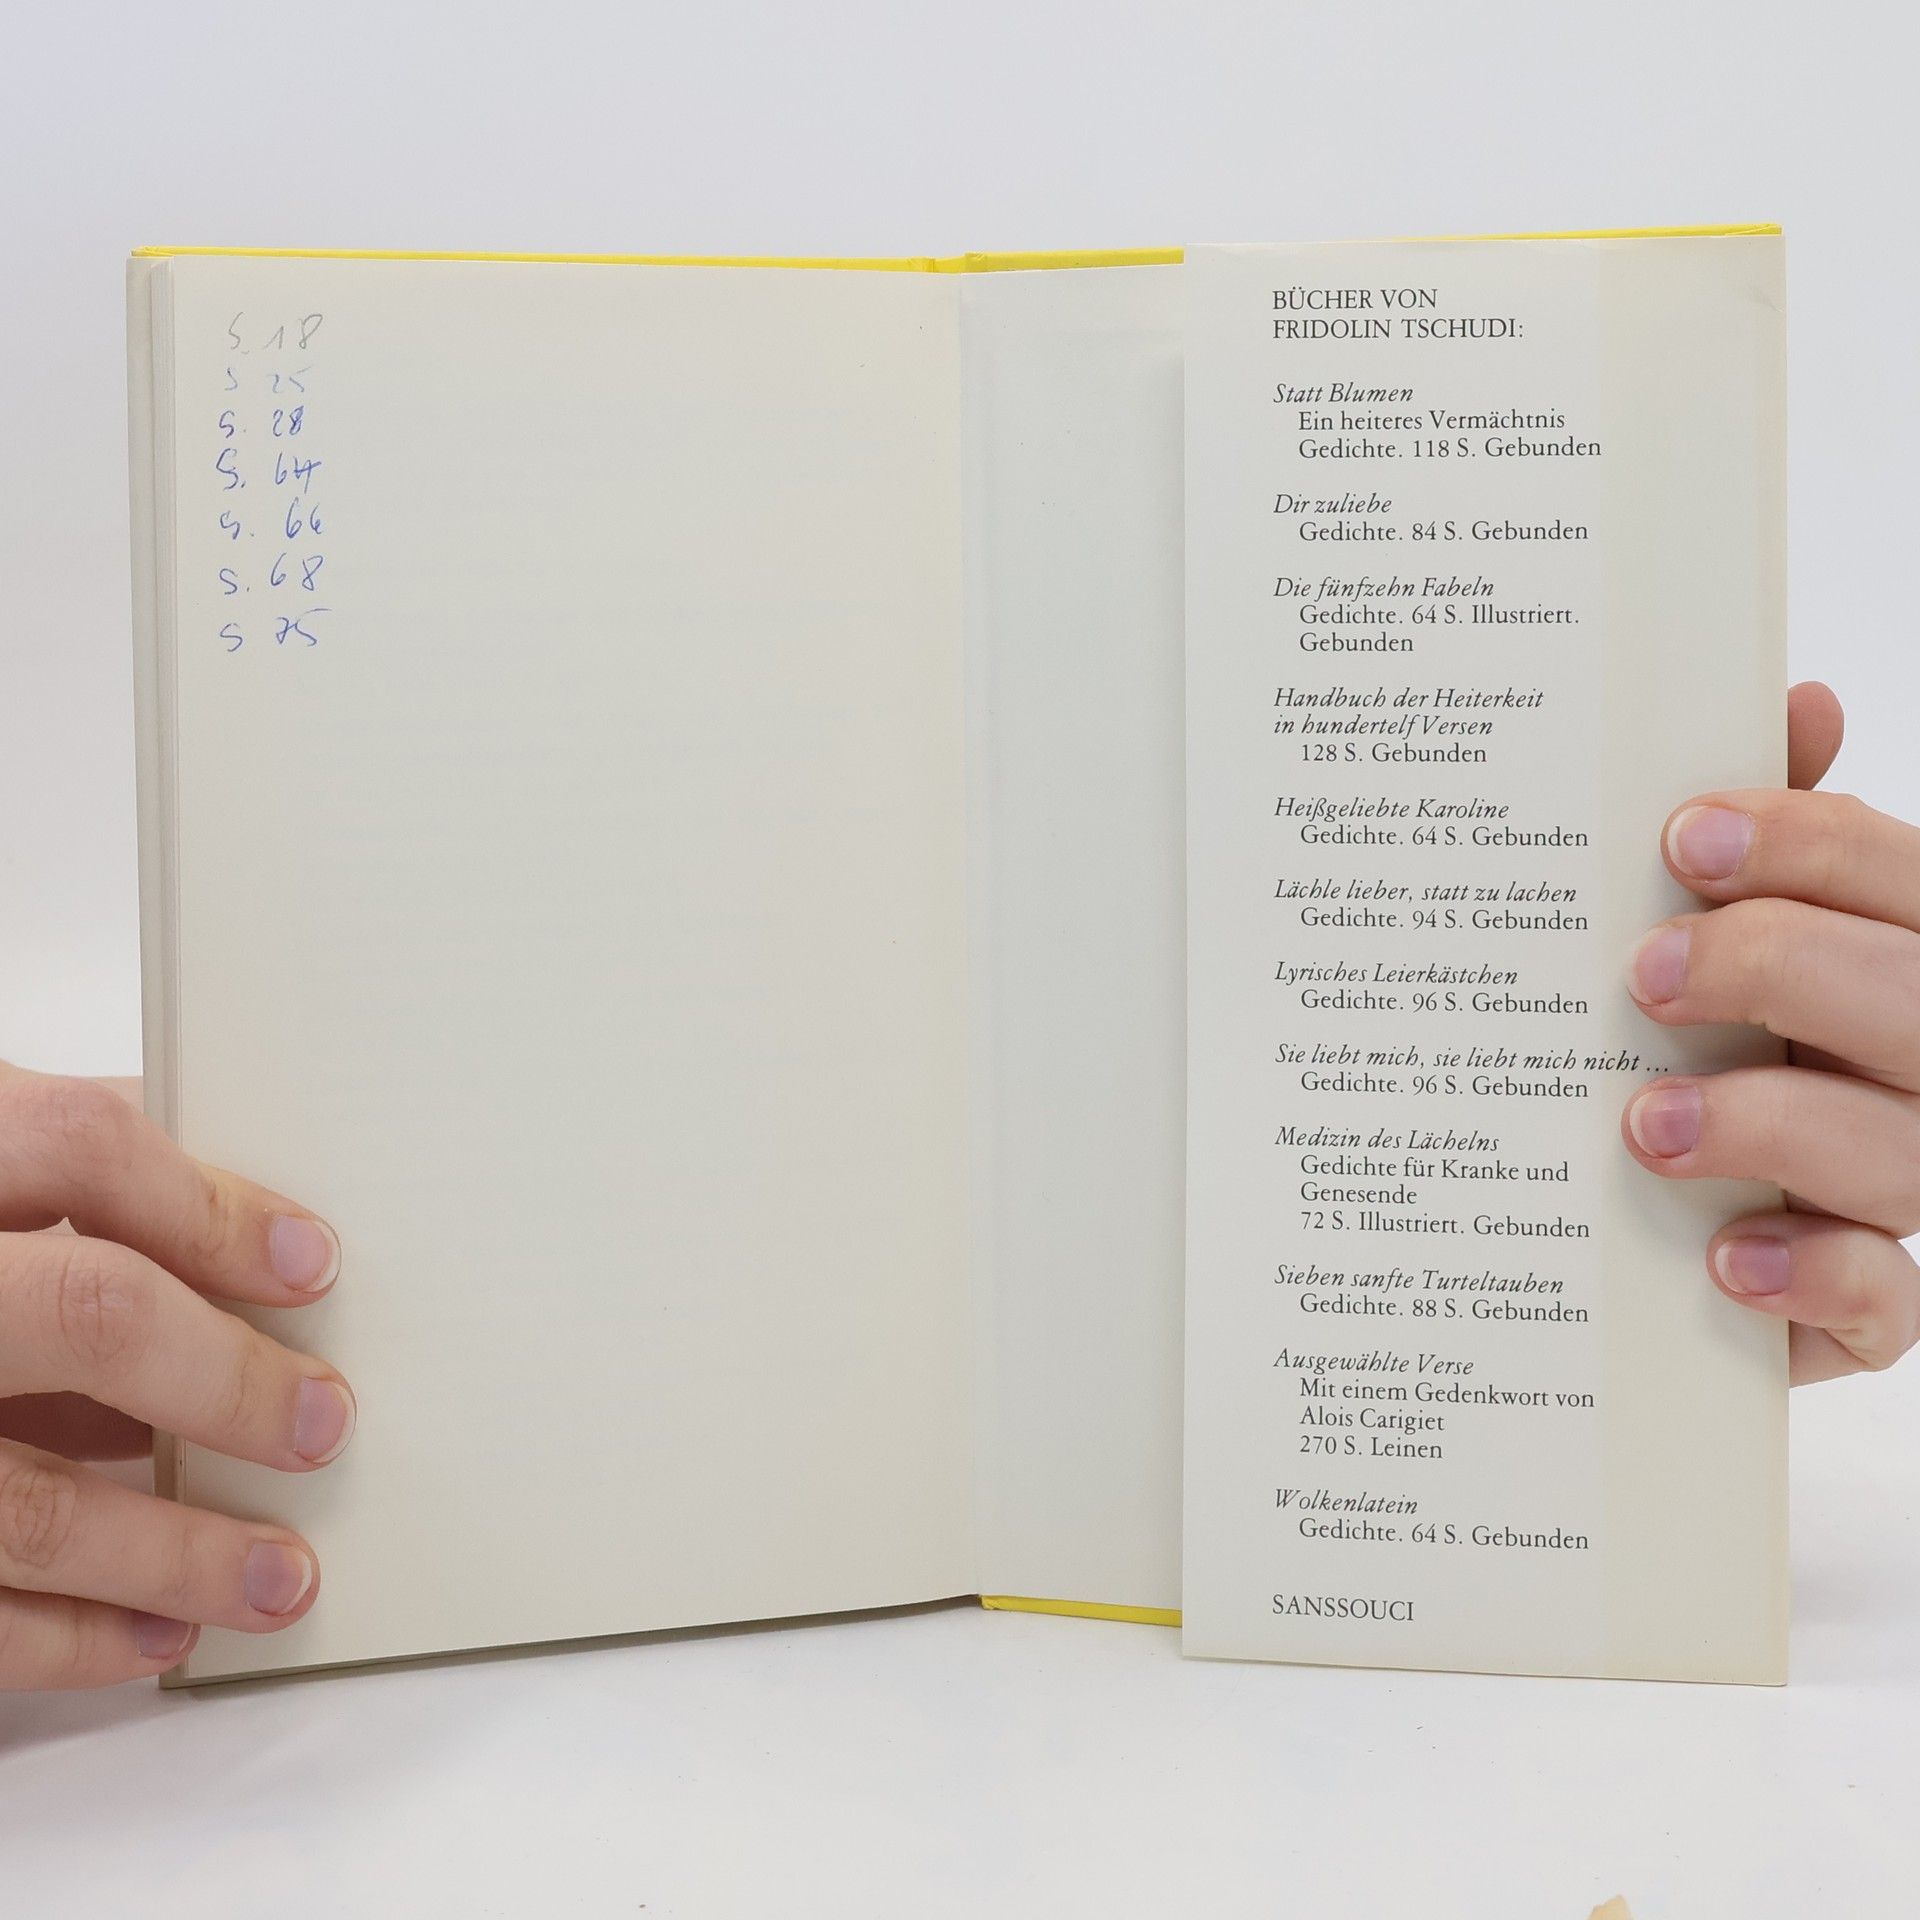 S. 18
S 25
S. 28
S. 64
S. 66
S. 68
S 75
BÜCHER VON
FRIDOLIN TSCHUDI:
Statt Blumen
Ein heiteres Vermächtnis
Gedichte. 118 S. Gebunden
Dir zuliebe
Gedichte. 84 S. Gebunden
Die fünfzehn Fabeln
Gedichte. 64 S. Illustriert.
Gebunden
Handbuch der Heiterkeit
in hundertelf Versen
128 S. Gebunden
Heißgeliebte Karoline
Gedichte. 64 S. Gebunden
Lächle lieber, statt zu lachen
Gedichte. 94 S. Gebunden
Lyrisches Leierkästchen
Gedichte. 96 S. Gebunden
Sie liebt mich, sie liebt mich nicht ...
Gedichte. 96 S. Gebunden
Medizin des Lächelns
Gedichte für Kranke und
Genesende
72 S. Illustriert. Gebunden
Sieben sanfte Turteltauben
Gedichte. 88 S. Gebunden
Ausgewählte Verse
Mit einem Gedenkwort von
Alois Carigiet
270 S. Leinen
Wolkenlatein
Gedichte. 64 S. Gebunden
SANSSOUCI